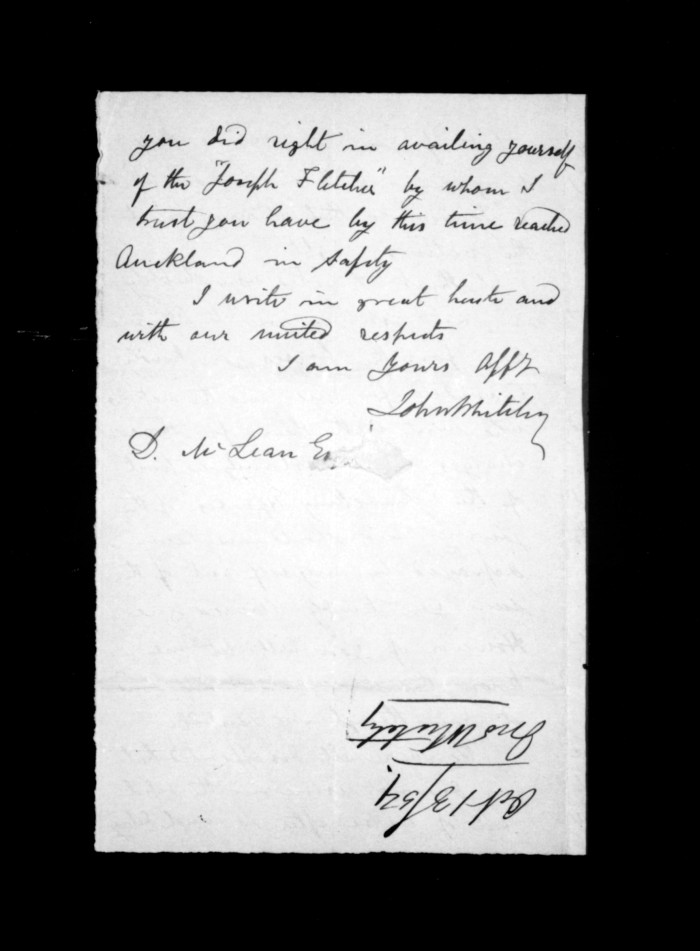 you did right in availing yourself
of the "Joseph Fletcher" by whom I
trust you have by this time reached
Auckland in safety
I write in great haste and
with our united respects
I am yours Afft
John Whiteley
D. McLean Es
Jno Whiteley
Oct 13/54